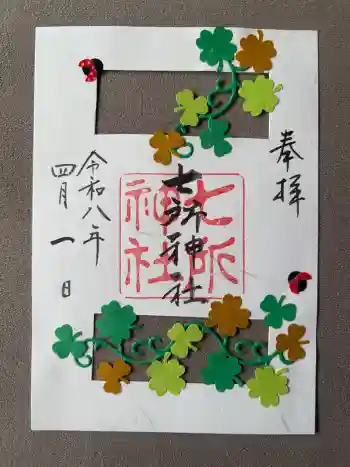 奉拝
七所神社
七所
神社
令和八年
四月一日